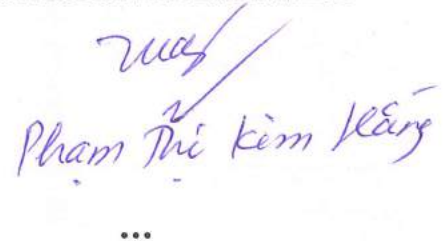 Phạm Thị Kim Hằng
...